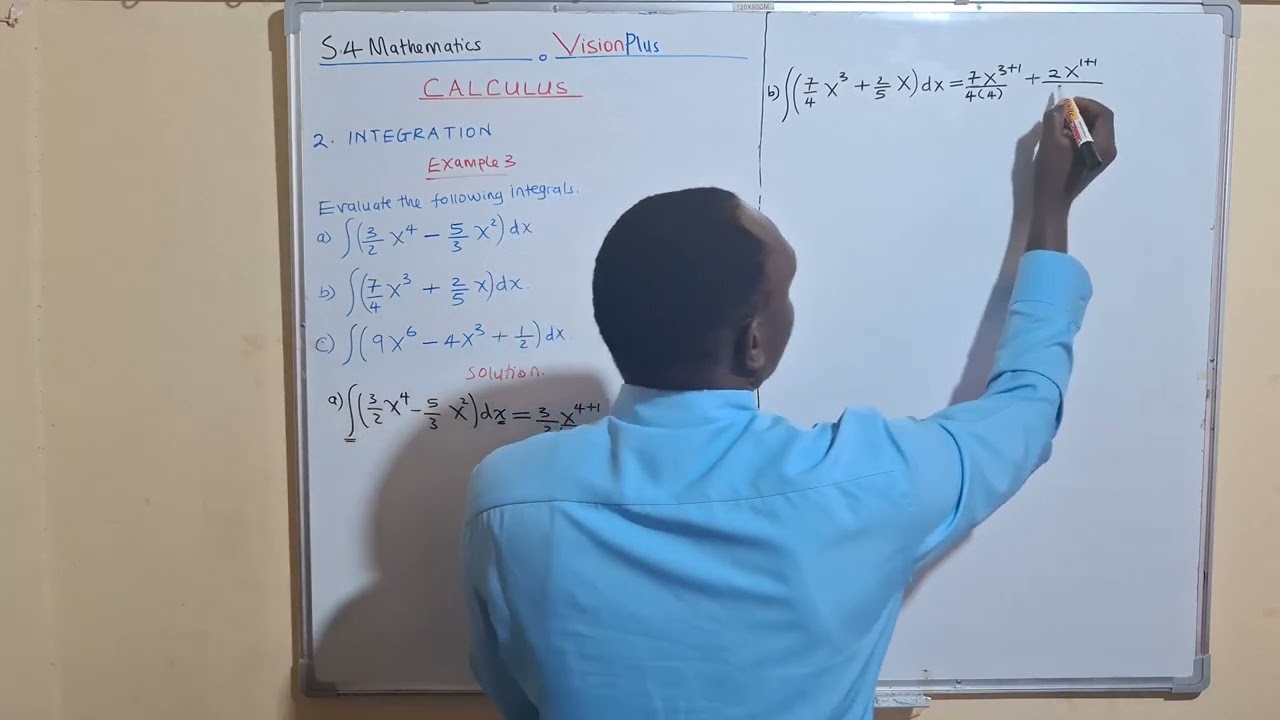 120X90CM
S.4 Mathematics VisionPlus
CALCULUS
2. INTEGRATION
Example 3
Evaluate the following integrals.
a) ∫(3/2 x⁴ − 5/3 x²)dx
b) ∫(7/4 x³ + 2/5 x)dx.
c) ∫(9x⁶ − 4x³ + 1/2)dx.
Solution.
a) ∫(3/2 x⁴ − 5/3 x²)dx = 3/2 x⁴⁺¹
b) ∫(7/4 x³ + 2/5 x)dx = 7x³⁺¹/4(4) + 2x¹⁺¹